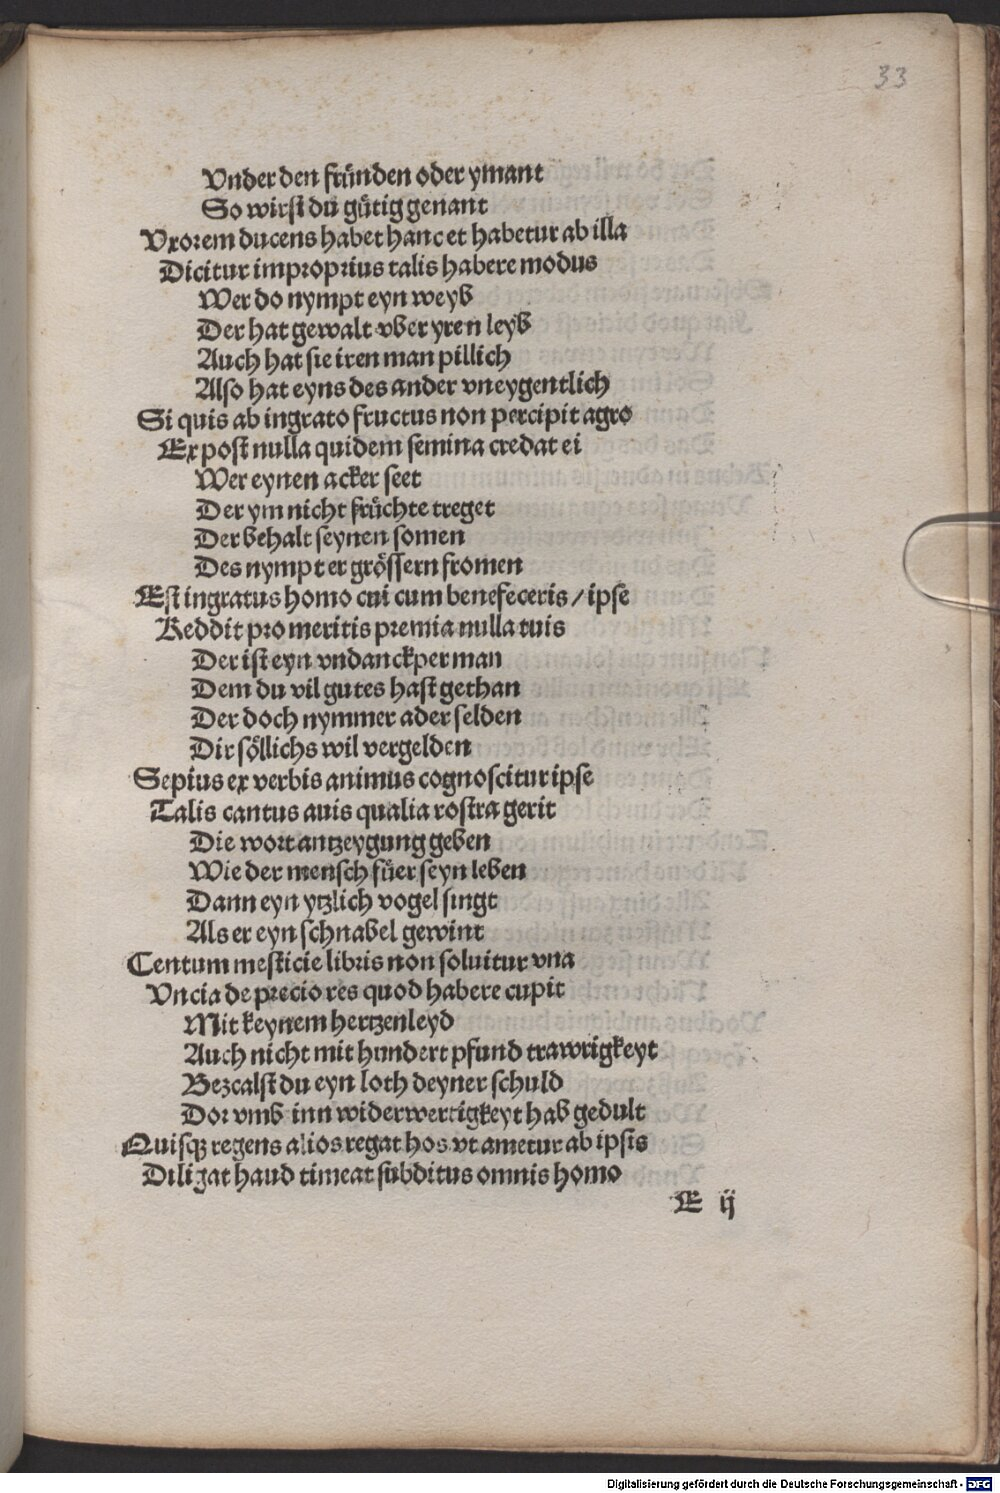 33
Vnder den fründen oder ymant
So wirst du gütig genant
Vxorem ducens habet hanc et habetur ab illa
Dicitur improprius talis habere modus
Wer do nympt eyn weyb
Der hat gewalt vber yren leyb
Auch hat sie iren man pillich
Also hat eyns des ander vneygentlich
Si quis ab ingrato fructus non percipit agro
Ex post nulla quidem semina credat ei
Wer eynen acker seet
Der ym nicht früchte treget
Der behalt seynen somen
Des nympt er grössern fromen
Est ingratus homo cui cum benefeceris / ipse
Reddit pro meritis premia nulla tuis
Der ist eyn vndanckper man
Dem du vil gutes hast gethan
Der doch nymmer ader selden
Dir söllichs wil vergelden
Sepius ex verbis animus cognoscitur ipse
Talis cantus auis qualia rostra gerit
Die wort antzeygung geben
Wie der mensch füer seyn leben
Dann eyn ytzlich vogel singt
Als er eyn schnabel gewint
Centum mesticie libris non soluitur vna
Vncia de precio res quod habere cupit
Mit keynem hertzenleyd
Auch nicht mit hundert pfund trawrigkeyt
Bezcalst du eyn loth deyner schuld
Dor vmb inn widerwertigkeyt hab gedult
Quisqꝫ regens alios regat hos vt ametur ab ipsis
Diligat haud timeat subditus omnis homo
E ij
Digitalisierung gefördert durch die Deutsche Forschungsgemeinschaft - DFG